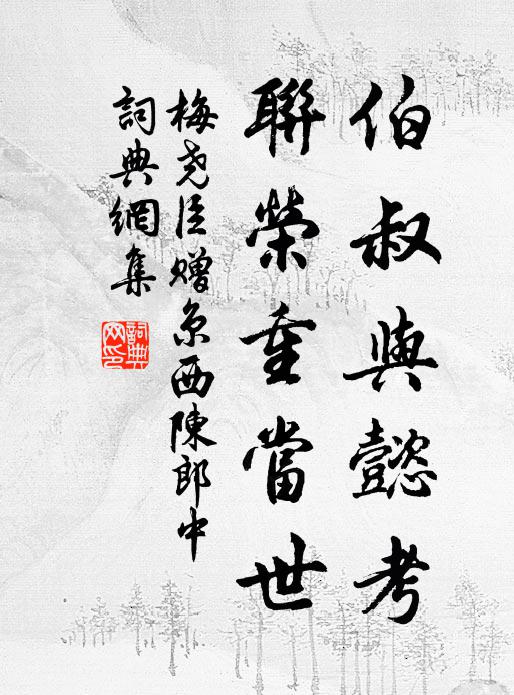 伯叔與懿考
聯榮重當世
梅尧臣赠京西陳郎中
詞典網集
詞典
网印